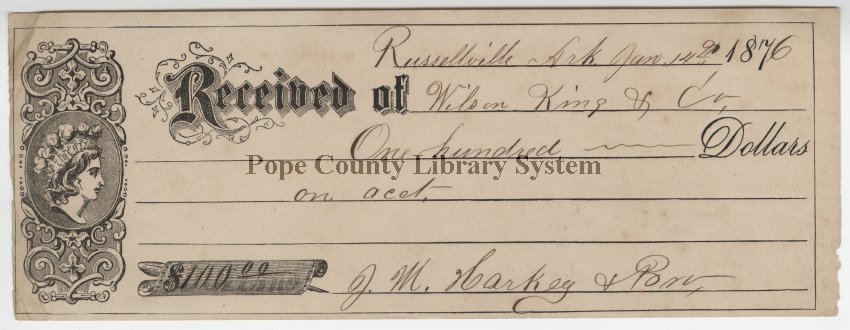 Russellville Ark Jan 14th 1876
Received of Wilson King & Co,
One hundred Dollars
Pope County Library System
on acct.
$100.00
J. M. Harkey & Bro,
LIBERTY